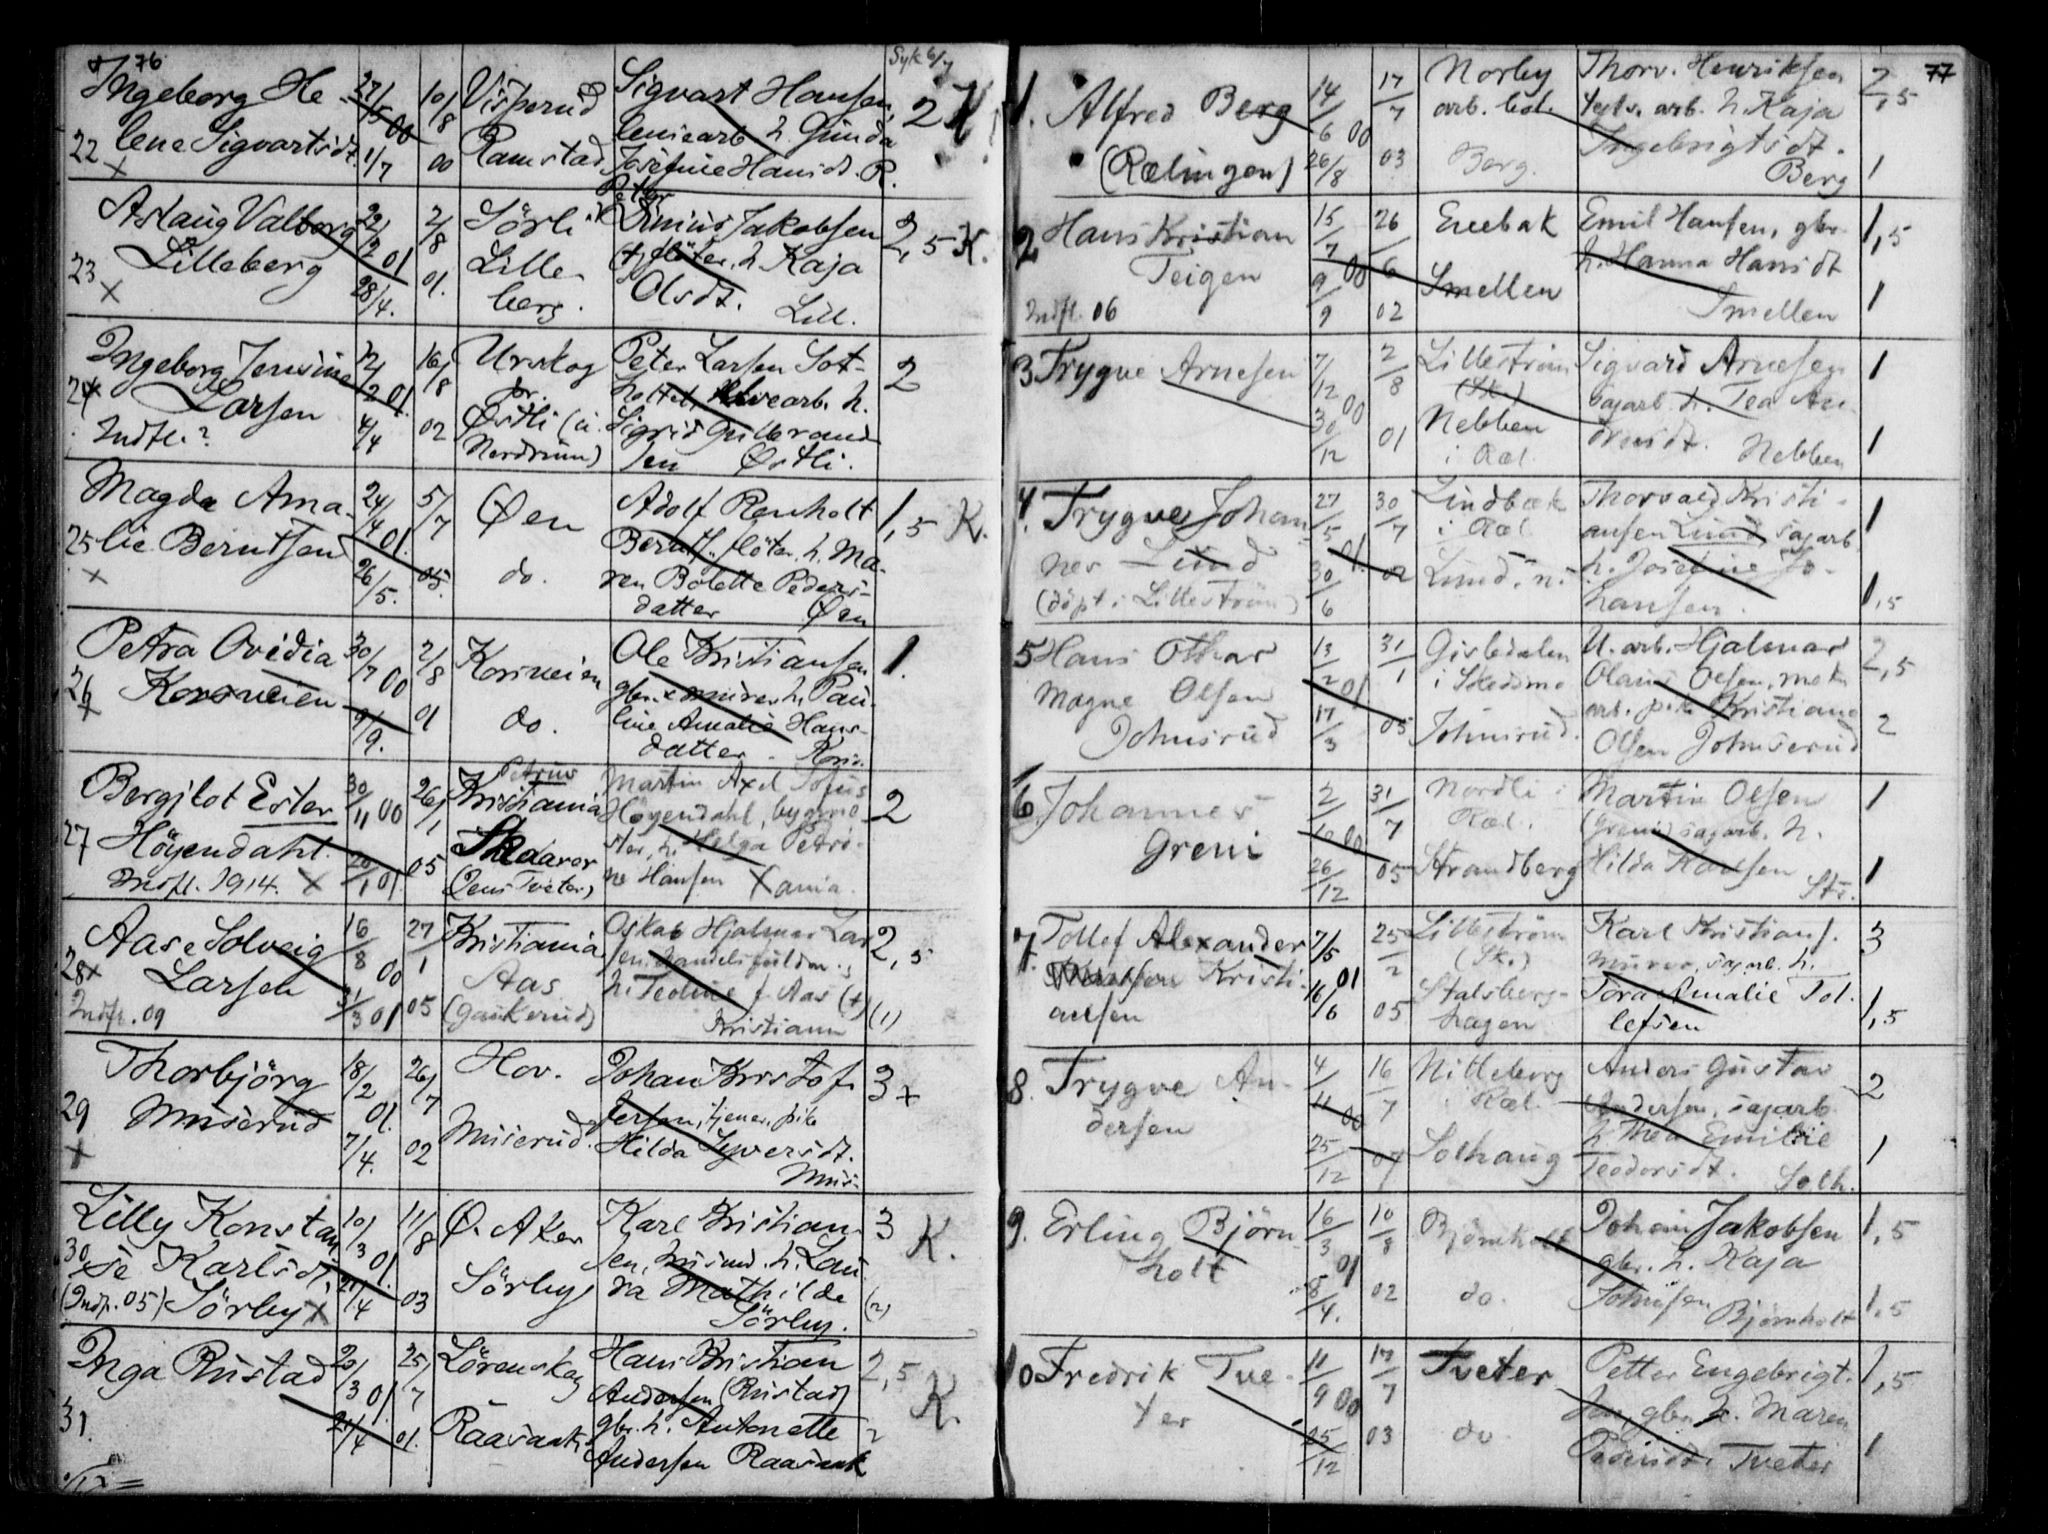 76
Ingeborg He
22 lene Sigvartsdt.
27/5 00
1/7
10/8
00
Visperud
Ramstad
Sigvart Hansen,
h. Gunda
Josefine Hansdt. R.
Syk 6/7
2 K
Aslaug Valborg
23 Lilleberg
22/2 01
28/4.
2/8
01.
Sörli
Lille-
berg.
Petter
Jakobsen
flöter, h. Kaja
Olsdt. Lill.
2,5 K.
Ingeborg Jensine
24 Larsen
Indfl.?
2/2 01.
4/4
16/8
02
Urskog
pr.
Østli (u.
Nordrum)
Peter Larsen Sot-
h.
Sigrid Gulbrand-
sen Østli.
2
Magda Ama-
25 lie Berntsen
24/4 01.
26/5.
5/7
05.
Øen
do.
Adolf Renholt
Berntsen flöter. h. Ma-
ren Bolette Peders-
datter Øen
1,5 K.
Petra Ovidia
26 Korsveien
30/7 00
9/9.
2/8
01
Korsveien
do.
Ole Kristiansen
gbr. x murer h. Pau-
line Amalie Hans-
datter. Kors.
1.
Bergjlot Ester
27 Höyendahl.
Indfl. 1914. X
30/11 00
20/1 01
26/1
05
Kristiania
Skaarer
(Jens Tveter)
Petrus
Martin Axel Sofus
Höyendahl, bygme-
ster, h. Helga Petri-
ne Hansen Xania.
2
Aase Solveig
28x Larsen
Indfl. 09
16/8 00
31/3 01
27/1
05
Kristiania
Aas
(Gaukerud)
Oskar Hjalmar Lar
sen, handelsfuldm.,
h. Teoline f. Aas (+)
Kristiania
2,5
(1)
Thorbjörg
29 Miserud
x
18/2 01.
7/4.
26/7
02
Hov.
Miserud
Johan Kristof-
fersen, tjener, pike
Hilda Syversdt.
Mis-
3 +
Lilly Konstan
30 se Karlsdt.
(Indfl. 05) Sörby x
10/3 01.
21/4
11/8
03
Ø. Aker
Sörby
Karl Kristian-
sen, husmd. h. Lau
ra Mathilde
Sörby.
3 K.
(2)
Inga Rustad
31.
20/3 01.
21/4
25/7
01.
Lörenskog
Raasank
Hans Kristian
Andersen (Rustad)
gbr. h. Antonette
Andersen Raasank
2,5 K.
2
77
1. Alfred Berg
(Rælingen)
14/6 00
26/8
17/7
03
Norby
arb. bol.
Berg.
Thorv. Henriksen
teglv. arb. h. Kaja
Ingebrigtsdt.
Berg
2,5
1
2 Hans Kristian
Teigen
Indfl. 06
15/7 00
9/9
26/6
02
Enebak
Smellen
Emil Hansen, gbr.
h. Hanna Hansdt
Smellen
1,5
1
3 Trygve Arnesen
7/12 00
30/12
2/8
01
Lilleström
(Sk.)
Nebben
i Ræl.
Sigvard Arnesen
sagarb. h. Tea An-
dreasdt. Nebben
1
1
4. Trygve Johan
nes Lund
(döpt i Lilleström)
27/5 01.
30/6
30/7
02
Lindbæk
i Ræl
Lund. n.
Thorvald Kristi-
ansen Lund, sagarb.
h. Josefine Jo-
hansen.
1
1,5
5 Hans Othar
Magne Olsen
Johnsrud
13/2 01
17/3
31/1
05
Gisledalen
i Skedsmo
Johnsrud.
U. arb. Hjalmar
Olaus Olsen, mek.
arb. pike Kristiane
Olsen Johnserud
2,5
2
6 Johannes
Greni
2/10 00
26/12
31/7
05
Nordli i
Ræl.
Strandberg
Martin Olsen
(Greni) sagarb. h.
Hilda Hansen
Str.
1
1
7. Tollef Alexander
Kristi-
ansen
7/5 01
16/6
25/2
05
Lilleström
(Sk.)
Stalsberg-
hagen
Karl Kristians.
murer, sagarb. h.
Tora Amalie Tol-
lefsen
3
1,5
8. Trygve An-
dersen
4/11 00
25/12
16/7
07
Nitteberg
i Ræl.
Solhaug
Anders Gustav
Andersen, sagarb.
h. Thea Emilie
Teodorsdt. Solh.
2
1
9. Erling Björn-
holt
16/3 01
8/4.
10/8
02
Björnholt
do.
Johan Jakobsen
gbr. h. Kaja
Johnsen
Björnholt
1,5
1,5
10 Fredrik Tve-
ter
11/9 00
25/12
17/7
03
Tveter
do
Petter Engebrigt-
sen, gbr. h. Maren
Pedersdt. Tveter
1,5
1